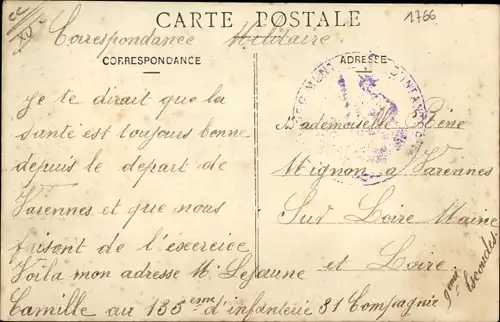 CARTE POSTALE
1766
Correspondance Militaire
CORRESPONDANCE
ADRESSE
je te dirait que la
santé est toujours bonne
depuis le depart de
Varennes et que nous
faisent de l'exerciee
Voila mon adresse Mr Lejaune
Camille au 135eme d'infanterie 31 Compagnie
9eme Escouade
Mademoiselle Réne
Mignon a Varennes
Sur Loire Maine
et Loire